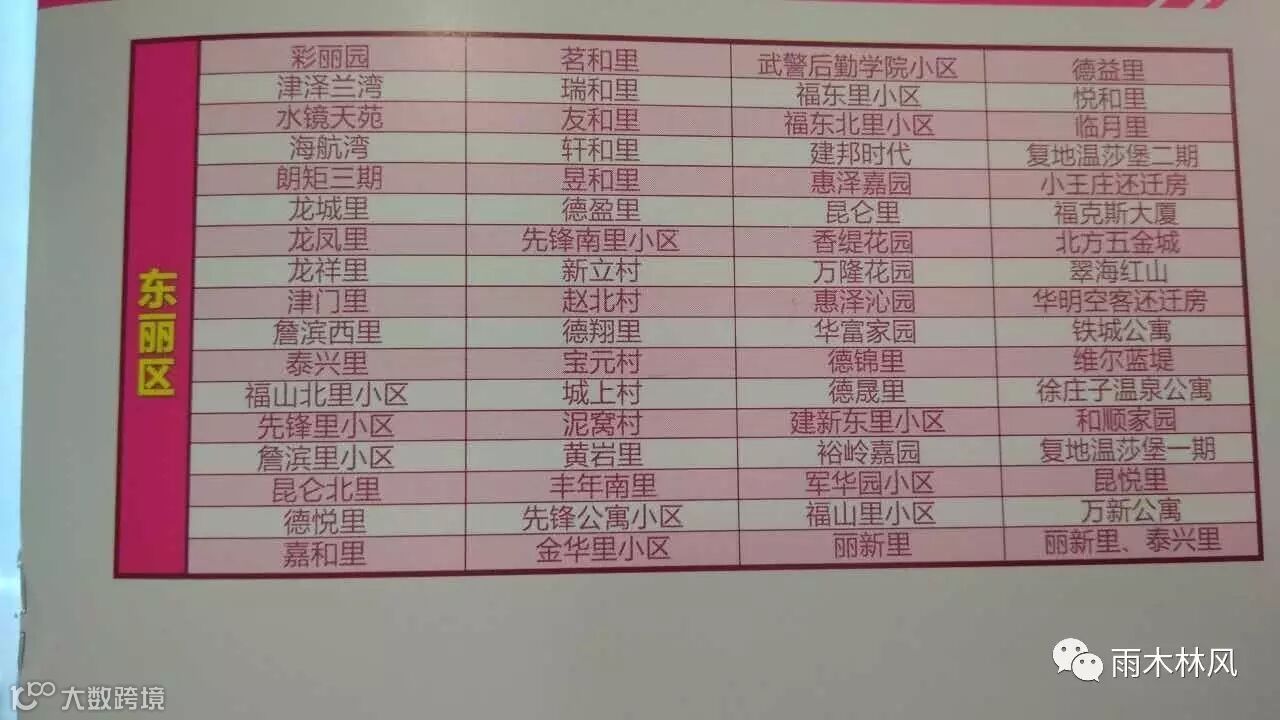 东丽区
彩丽园 茗和里 武警后勤学院小区 德益里
津泽兰湾 瑞和里 福东里小区 悦和里
水镜天苑 友和里 福东北里小区 临月里
海航湾 轩和里 建邦时代 复地温莎堡二期
朗矩三期 昱和里 惠泽嘉园 小王庄还迁房
龙城里 德盈里 昆仑里 福克斯大厦
龙凤里 先锋南里小区 香缇花园 北方五金城
龙祥里 新立村 万隆花园 翠海红山
津门里 赵北村 惠泽沁园 华明空客还迁房
詹滨西里 德翔里 华富家园 铁城公寓
泰兴里 宝元村 德锦里 维尔蓝堤
福山北里小区 城上村 德晟里 徐庄子温泉公寓
先锋里小区 泥窝村 建新东里小区 和顺家园
詹滨里小区 黄岩里 裕岭嘉园 复地温莎堡一期
昆仑北里 丰年南里 军华园小区 昆悦里
德悦里 先锋公寓小区 福山里小区 万新公寓
嘉和里 金华里小区 丽新里 丽新里、泰兴里
雨木林风
大数跨境